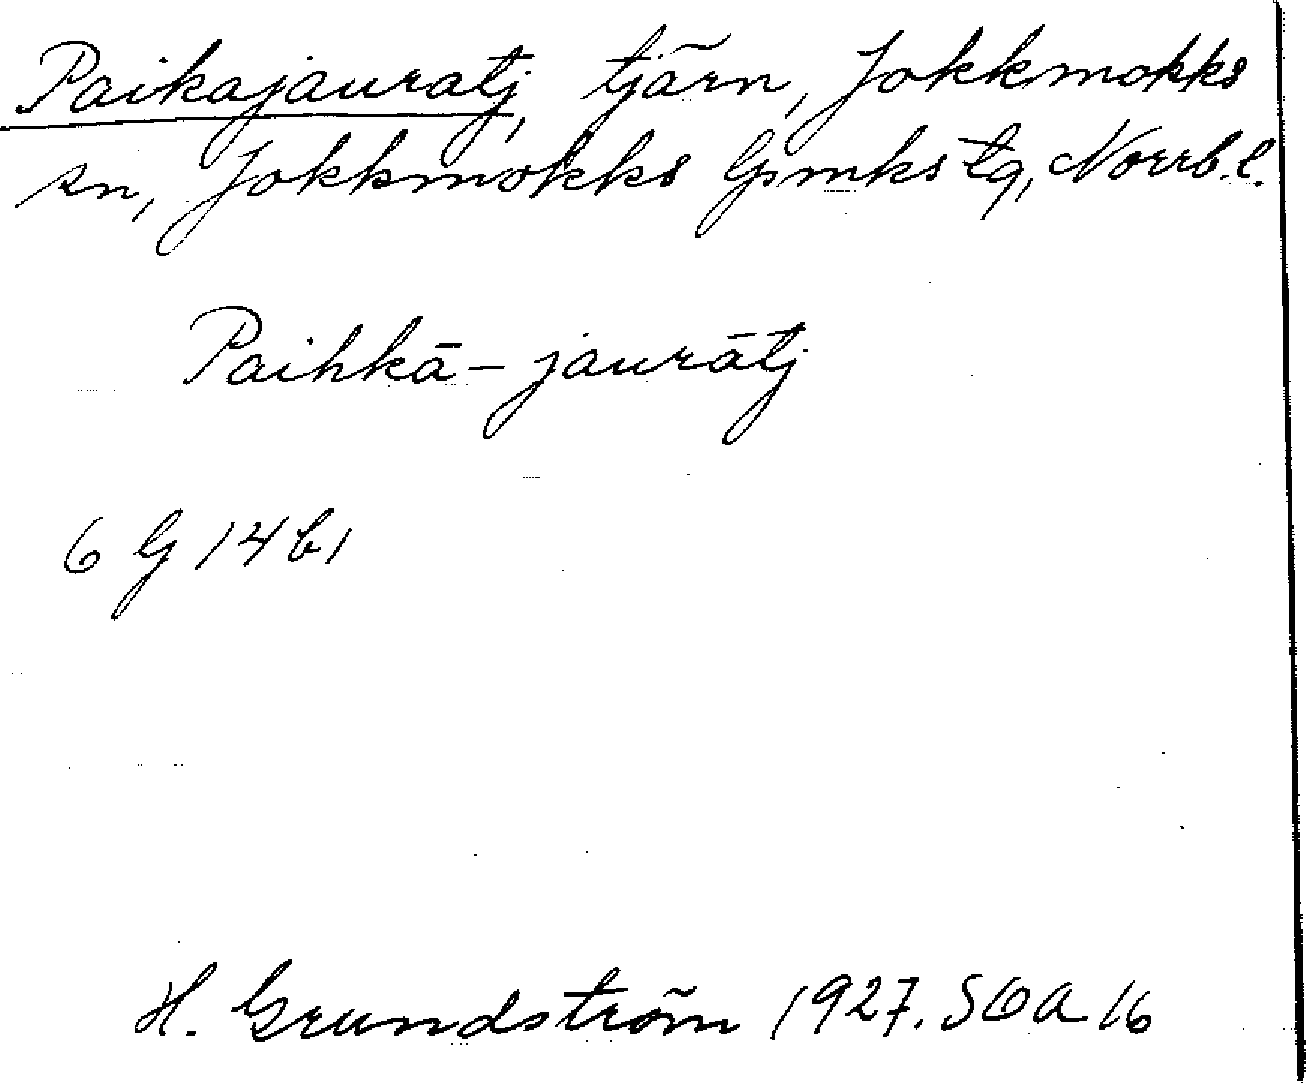 Paikajauratj, tjärn, Jokkmokks
sn, Jokkmokks lpmkstg, Norrb.l.
Paihkā-jaurātj
6 G 14 b 1
H. Grundström 1927. SOA 16